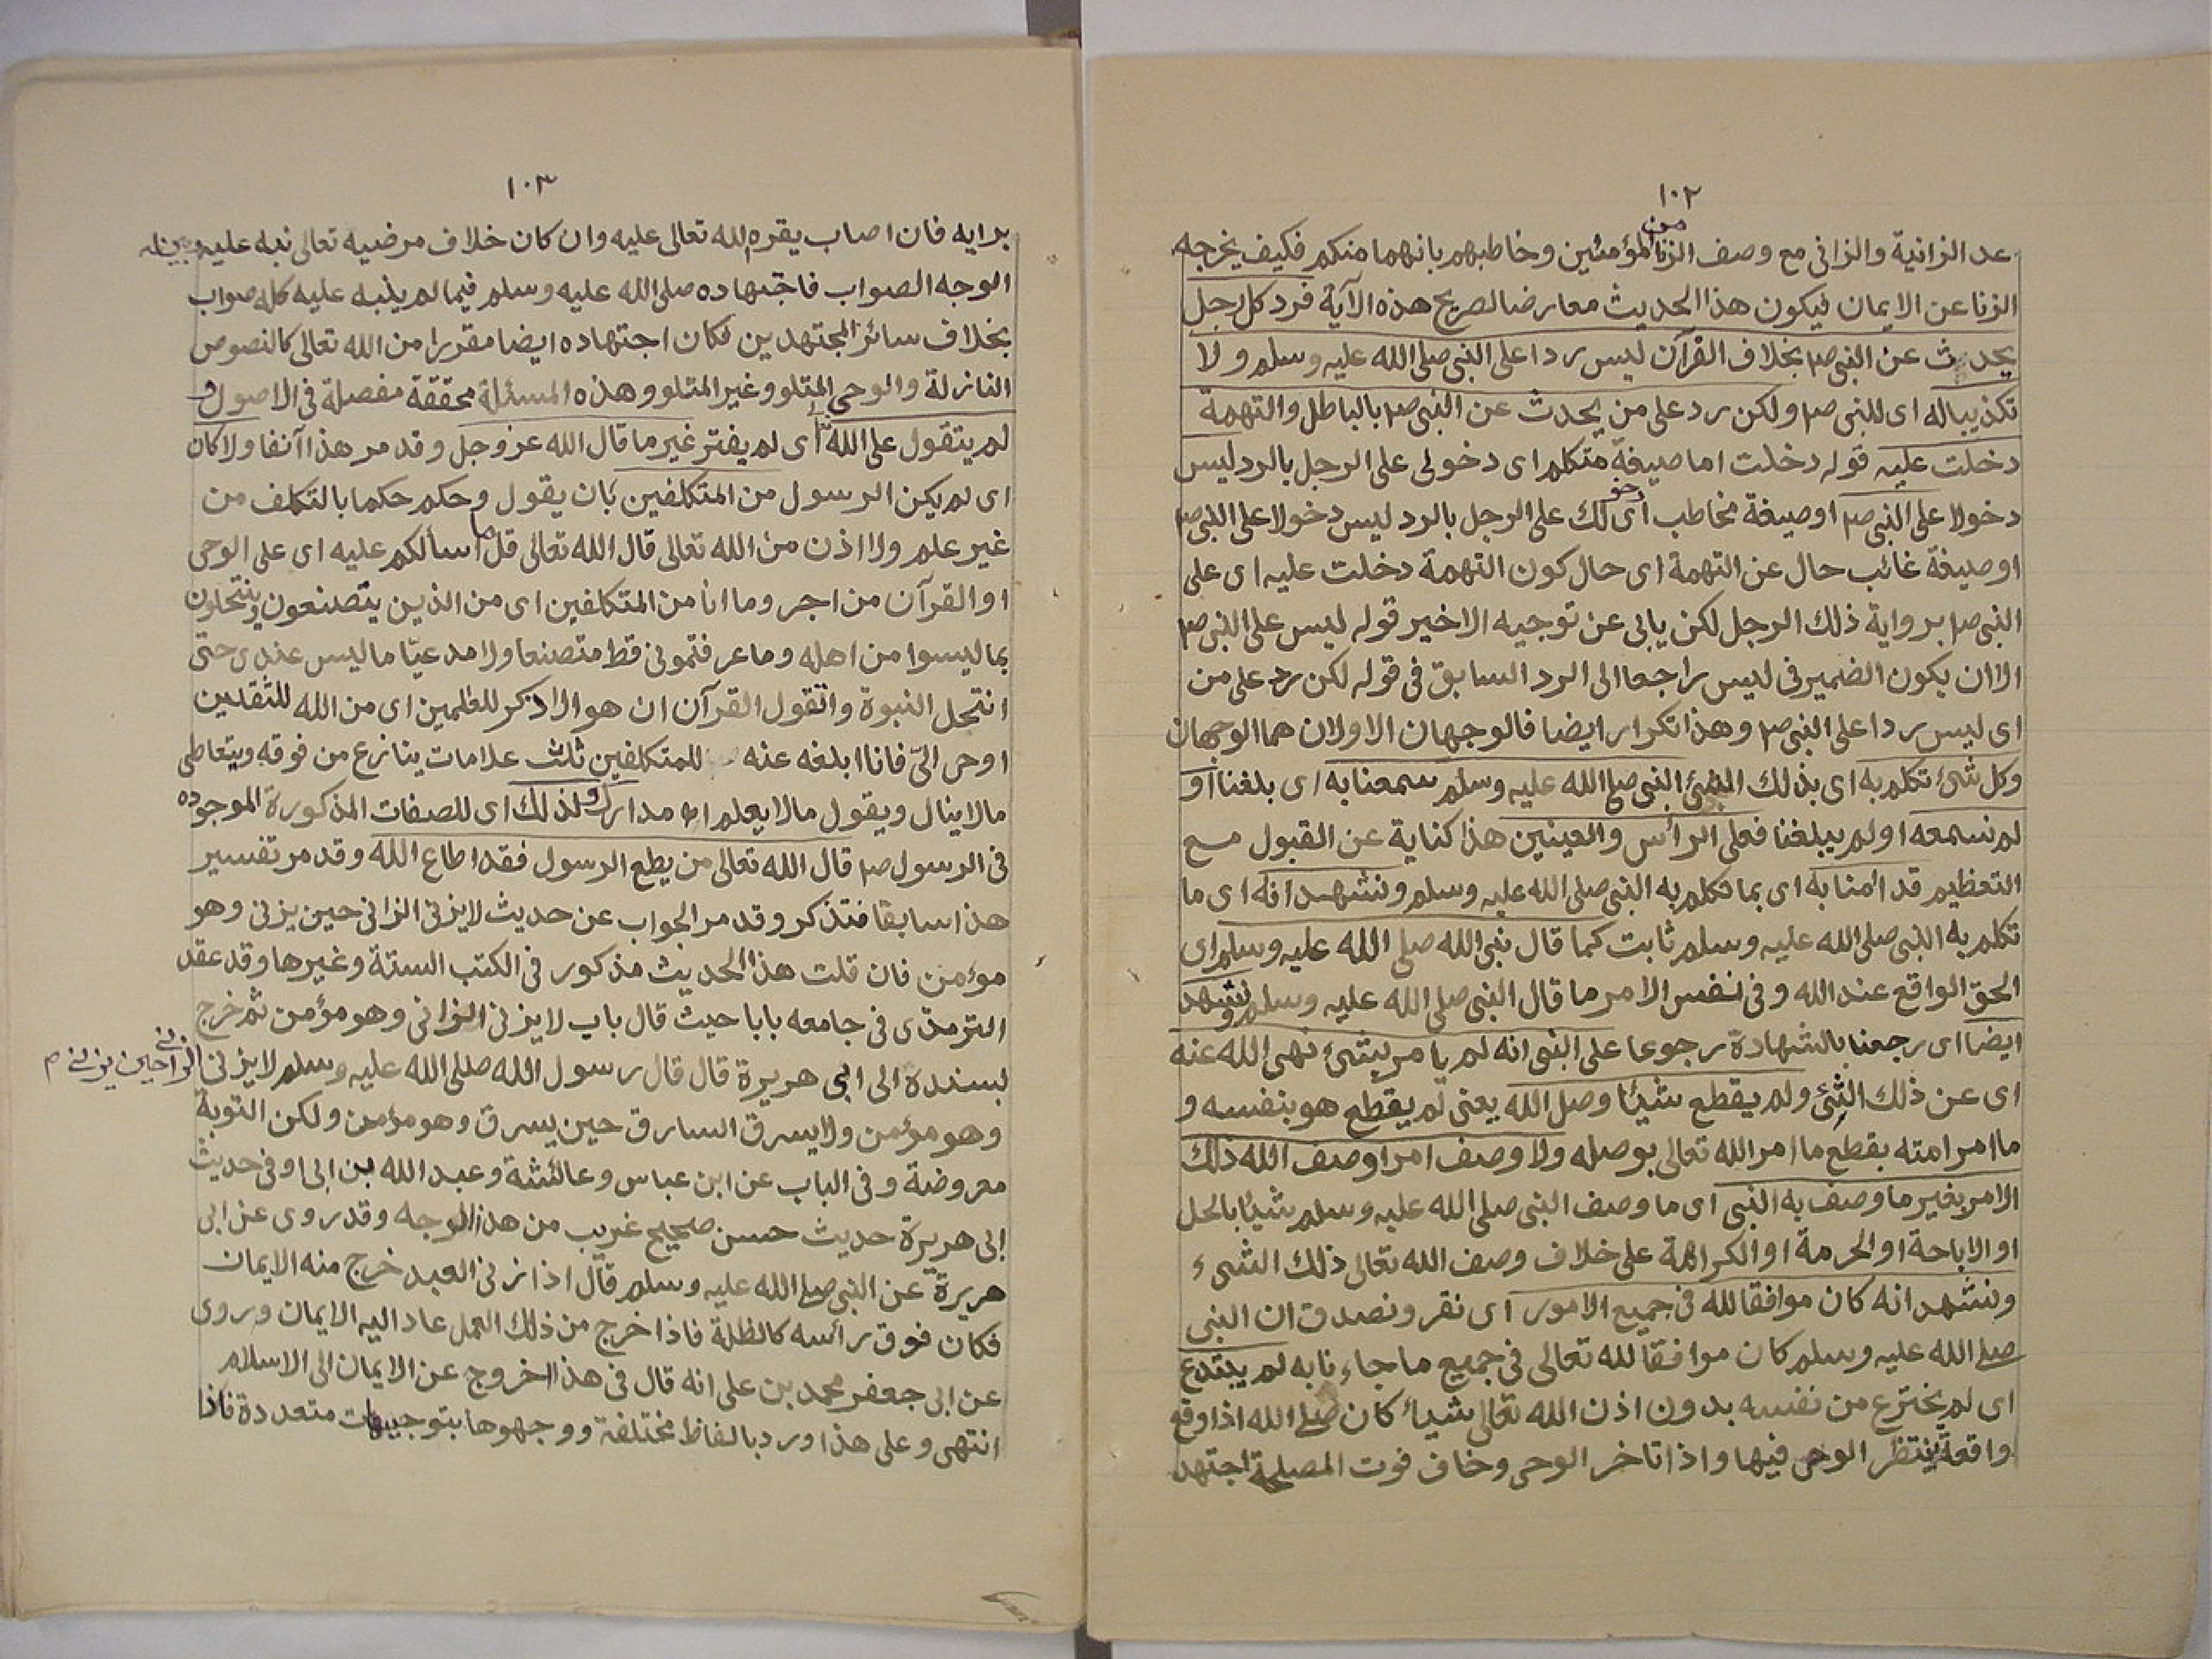 ١٠٢
من
عد الزانية والزانى مع وصف الزنا المؤمنين وخاطبهم بانهما منكم فكيف يخرجه
الزنا عن الايمان فيكون هذا الحديث معارضا لصريح هذه الآية فرد كل رجل
يحدث عن النبى صم بخلاف القرآن ليس ردا على النبى صلى الله عليه وسلم ولا
تكذيبا له اى للنبى صم ولكن رد على من يحدث عن النبى صم بالباطل والتهمة
دخلت عليه قوله دخلت اما صيغة متكلم اى دخولى على الرجل بالرد ليس
دخولا على النبى صم او صيغة مخاطب اى دخولك على الرجل بالرد ليس دخولا على النبى صم
او صيغة غائب حال عن التهمة اى حال كون التهمة دخلت عليه اى على
النبى صم برواية ذلك الرجل لكن يابى عن توجيه الاخير قوله ليس على النبى صم
الا ان يكون الضمير فى ليس راجعا الى الرد السابق فى قوله لكن رد على من
اى ليس ردا على النبى صم وهذا تكرار ايضا فالوجهان الاولان هما الوجهان
وكل شئ تكلم به اى بذلك الشئ النبى صلى الله عليه وسلم سمعنا به اى بلغنا او
لم نسمعه او لم يبلغنا فعلى الرأس والعينين هذا كناية عن القبول مع
التعظيم قد امنا به اى بما تكلم به النبى صلى الله عليه وسلم ونشهد انه اى ما
تكلم به النبى صلى الله عليه وسلم ثابت كما قال نبى الله صلى الله عليه وسلم اى
الحق الواقع عند الله وفى نفس الامر ما قال النبى صلى الله عليه وسلم ونشهد
ايضا اى رجعنا بالشهادة رجوعا على النبى انه لم يامر بشئ نهى الله عنه
اى عن ذلك الشئ ولم يقطع شيئا وصل الله يعنى لم يقطع هو بنفسه و
ما امر امته بقطع ما امر الله تعالى بوصله ولا وصف امرا وصف الله ذلك
الامر بغير ما وصف به النبى اى ما وصف النبى صلى الله عليه وسلم شيئا بالحل
او الاباحة او الحرمة او الكراهة على خلاف وصف الله تعالى ذلك الشىء
ونشهد انه كان موافقا لله فى جميع الامور اى نقر ونصدق ان النبى
صلى الله عليه وسلم كان موافقا لله تعالى فى جميع ما جاءنا به لم يبتدع
اى لم يخترع من نفسه بدون اذن الله تعالى شيئا كان صلى الله اذا وقع
واقعة ينتظر الوحى فيها واذا تاخر الوحى وخاف فوت المصلحة اجتهد
١٠٣
برايه فان اصاب يقره الله تعالى عليه وان كان خلاف مرضيه تعالى نبه عليه
الوجه الصواب فاجتهاده صلى الله عليه وسلم فيما لم ينبه عليه كله صواب
بخلاف سائر المجتهدين فكان اجتهاده ايضا مقررا من الله تعالى كالنصوص
النازلة والوحى المتلو وغير المتلو وهذه المسئلة محققة مفصلة فى الاصول و
لم يتقول على الله اى لم يفتر غير ما قال الله عز وجل وقد مر هذا آنفا ولا كان
اى لم يكن الرسول من المتكلفين بان يقول وحكم حكما بالتكلف من
غير علم ولا اذن من الله تعالى قال الله تعالى قل ما اسألكم عليه اى على الوحى
او القرآن من اجر وما انا من المتكلفين اى من الذين يتصنعون وينتحلون
بما ليسوا من اهله وما عرفتمونى قط متصنعا ولا مدعيا ما ليس عندى حتى
انتحل النبوة واتقول القرآن ان هو الا ذكر للعلمين اى من الله للثقلين
اوحى الىّ فانا ابلغه عنه للمتكلفين ثلث علامات ينازع من فوقه ويتعاطى
ما لا ينال ويقول ما لا يعلم اه مدارك ولذلك اى للصفات المذكورة الموجودة
فى الرسول صم قال الله تعالى من يطع الرسول فقد اطاع الله وقد مر تفسير
هذا سابقا فتذكر وقد مر الجواب عن حديث لا يزنى الزانى حين يزنى وهو
مؤمن فان قلت هذا الحديث مذكور فى الكتب الستة وغيرها وقد عقد
الترمذى فى جامعه بابا حيث قال باب لا يزنى الزانى وهو مؤمن ثم خرج
بسنده الى ابى هريرة قال قال رسول الله صلى الله عليه وسلم لا يزنى الزانى حين يزنى م
وهو مؤمن ولا يسرق السارق حين يسرق وهو مؤمن ولكن التوبة
معروضة وفى الباب عن ابن عباس وعائشة وعبد الله بن ابى اوفى حديث
ابى هريرة حديث حسن صحيح غريب من هذا الوجه وقد روى عن ابى
هريرة عن النبى صلى الله عليه وسلم قال اذا زنى العبد خرج منه الايمان
فكان فوق رأسه كالظلة فاذا خرج من ذلك العمل عاد اليه الايمان وروى
عن ابى جعفر محمد بن على انه قال فى هذا الخروج عن الايمان الى الاسلام
انتهى وعلى هذا ورد بالفاظ مختلفة ووجهوها بتوجيهات متعددة فاذا